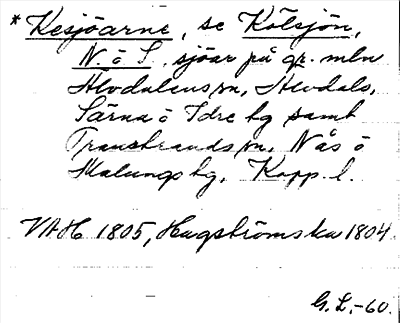 * Kesjöarne, se Kölsjön,
N. o S., sjöar på gr. mln
Älvdalens sn, Älvdals,
Särna o Idre tg samt
Transtrands sn, Nås o
Malungs tg, Kopp. l.
VAH 1805, Hagströms ka 1804
G. L. -60.